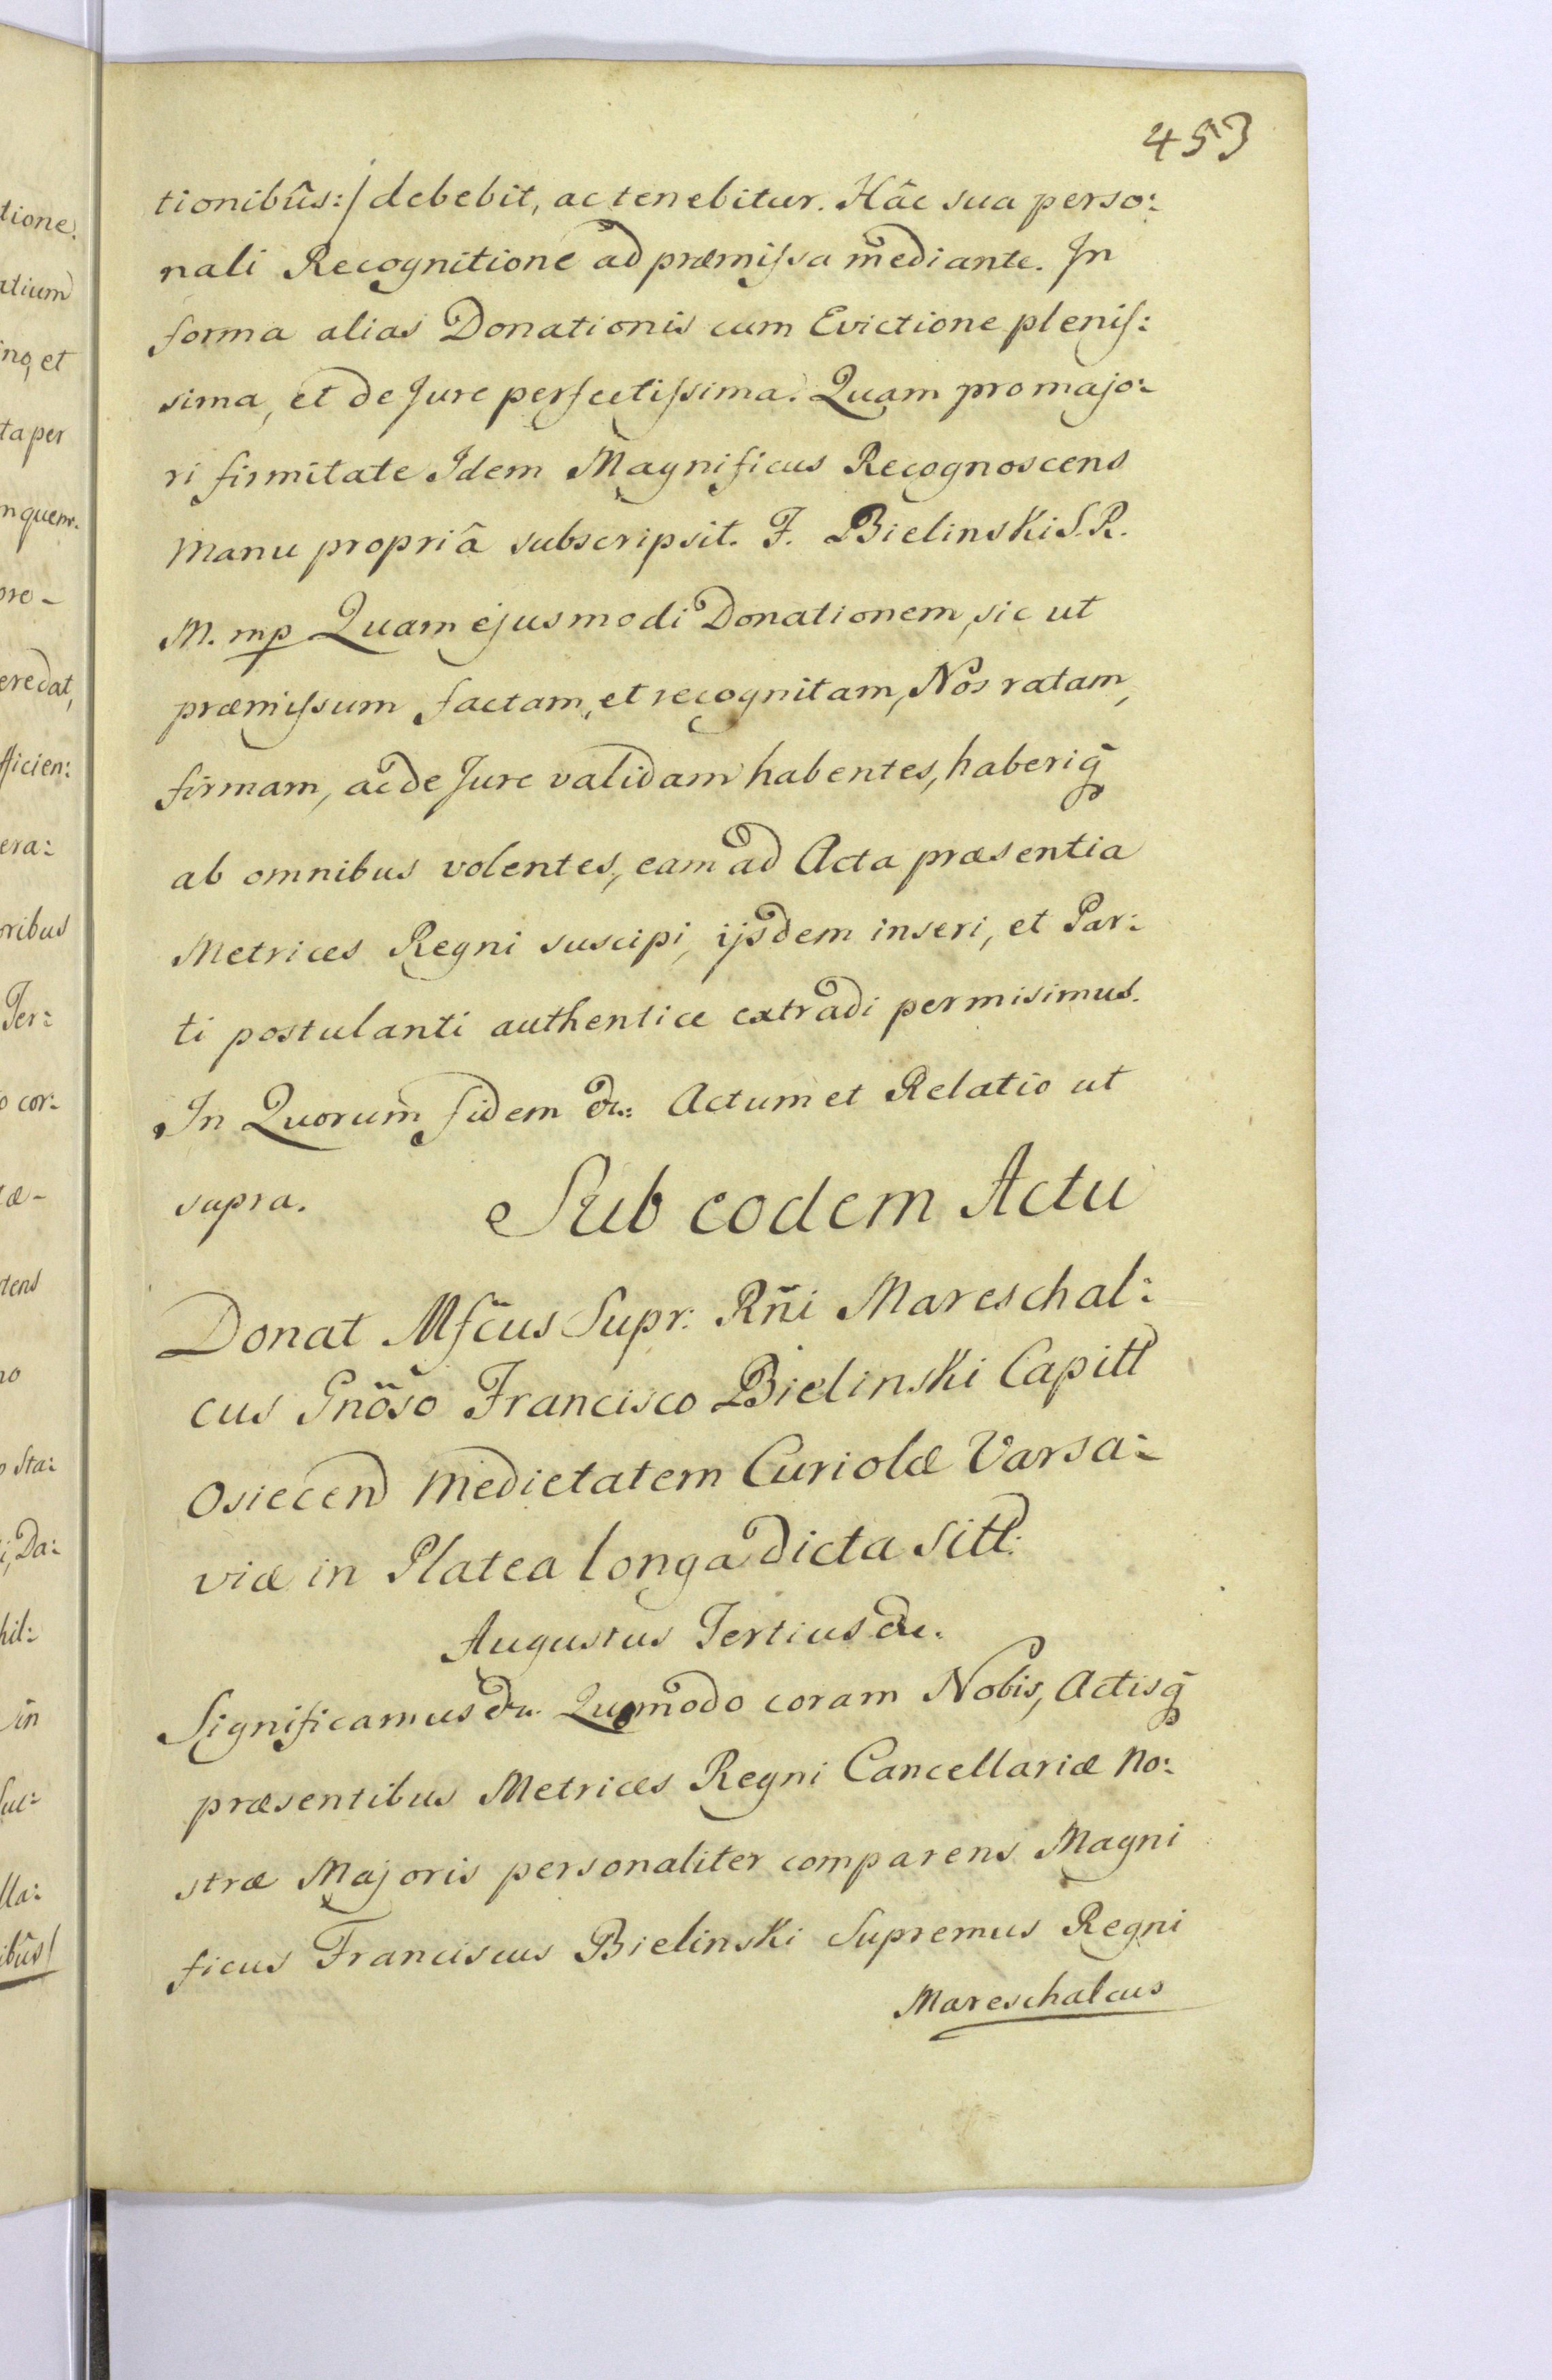 453
tionibûs:/ debebit, ac tenebitur. Hâc sua perso:
nali Recognitione ad præmissa mediante. In
forma alias Donationis cum Evictione plenis:
sima, et de Jure perfectissima. Quam pro majo:
ri firmitate Idem Magnificus Recognoscens
manu propriâ subscripsit. F. Bielinski S. R.
M. mp Quam ejusmodi Donationem, sic ut
præmissum factam, et recognitam, Nos ratam,
firmam, ac de Jure validam habentes, haberiq̃
ab omnibus volentes, eam ad Acta præsentia
Metrices Regni suscipi, ijsdem inseri, et Par:
ti postulanti authentice extradi permisimus.
In Quorum fidem &c: Actum et Relatio ut
supra. Sub eodem Actu
Donat Mfcus Supr: Rñi Mareschal:
cus Gnõso Francisco Bielinski Capitl
Osiecen medietatem Curiolæ Varsa:
viæ in Platea longa dicta sitl:
Augustus Tertius &c.
Significamus &c. Quomodo coram Nobis, Actisq̃
præsentibus Metrices Regni Cancellariæ No:
stræ Majoris personaliter comparens Magni
ficus Franciscus Bielinski Supremus Regni
Mareschalcus
tione.
atium
ino, et
ta per
nquem.
pre-
eredat,
fficien:
era:
oribus
Ter:
o cor:
æ-
tens
no
o sta:
i, Da:
hil:
in
Suc:
lla:
ibûs/